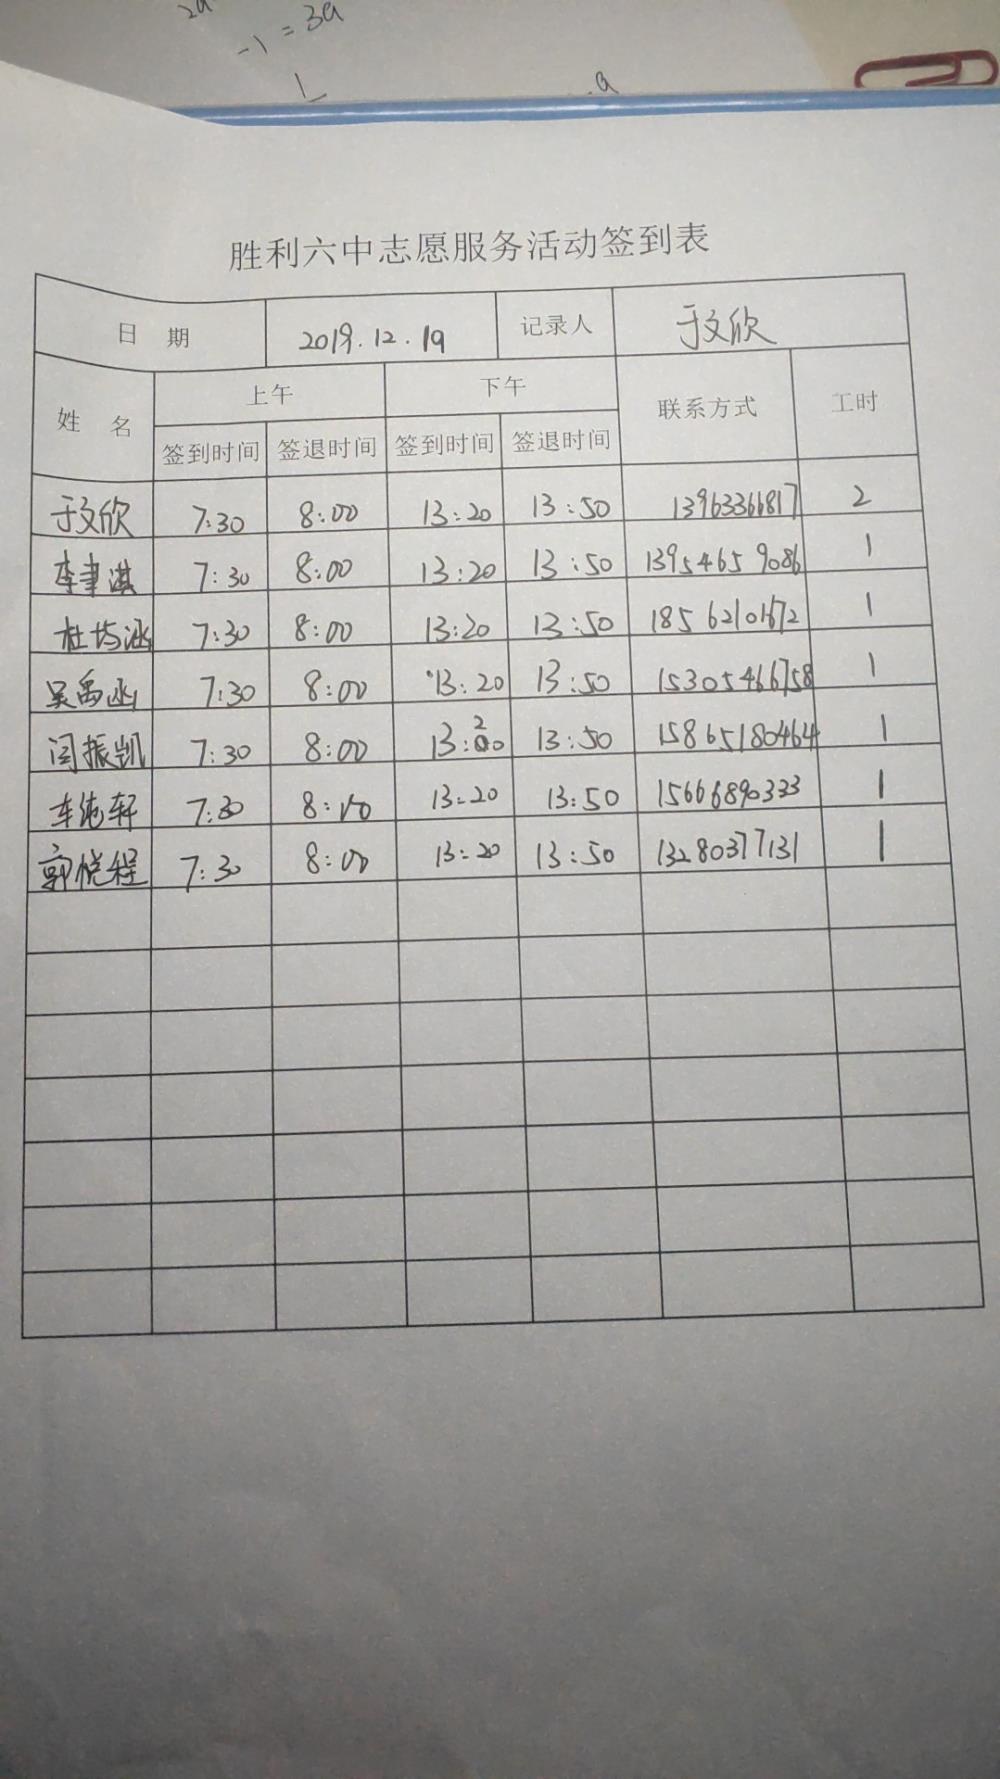 2a
-1 = 3a
胜利六中志愿服务活动签到表
日 期 2019.12.19 记录人 于文欣
姓 名 上午 下午 联系方式 工时
签到时间 签退时间 签到时间 签退时间
于文欣 7:30 8:00 13:20 13:50 13963366817 2
李聿淇 7:30 8:00 13:20 13:50 13954659086 1
杜均涵 7:30 8:00 13:20 13:50 1 
吴禹函 7:30 8:00 13:20 13:50 15305466758 1
闫振凯 7:30 8:00 13:20 13:50 15865180464 1
车纯轩 7:30 8:00 13:20 13:50 15666890333 1
郭悦程 7:30 8:00 13:20 13:50 13280377131 1